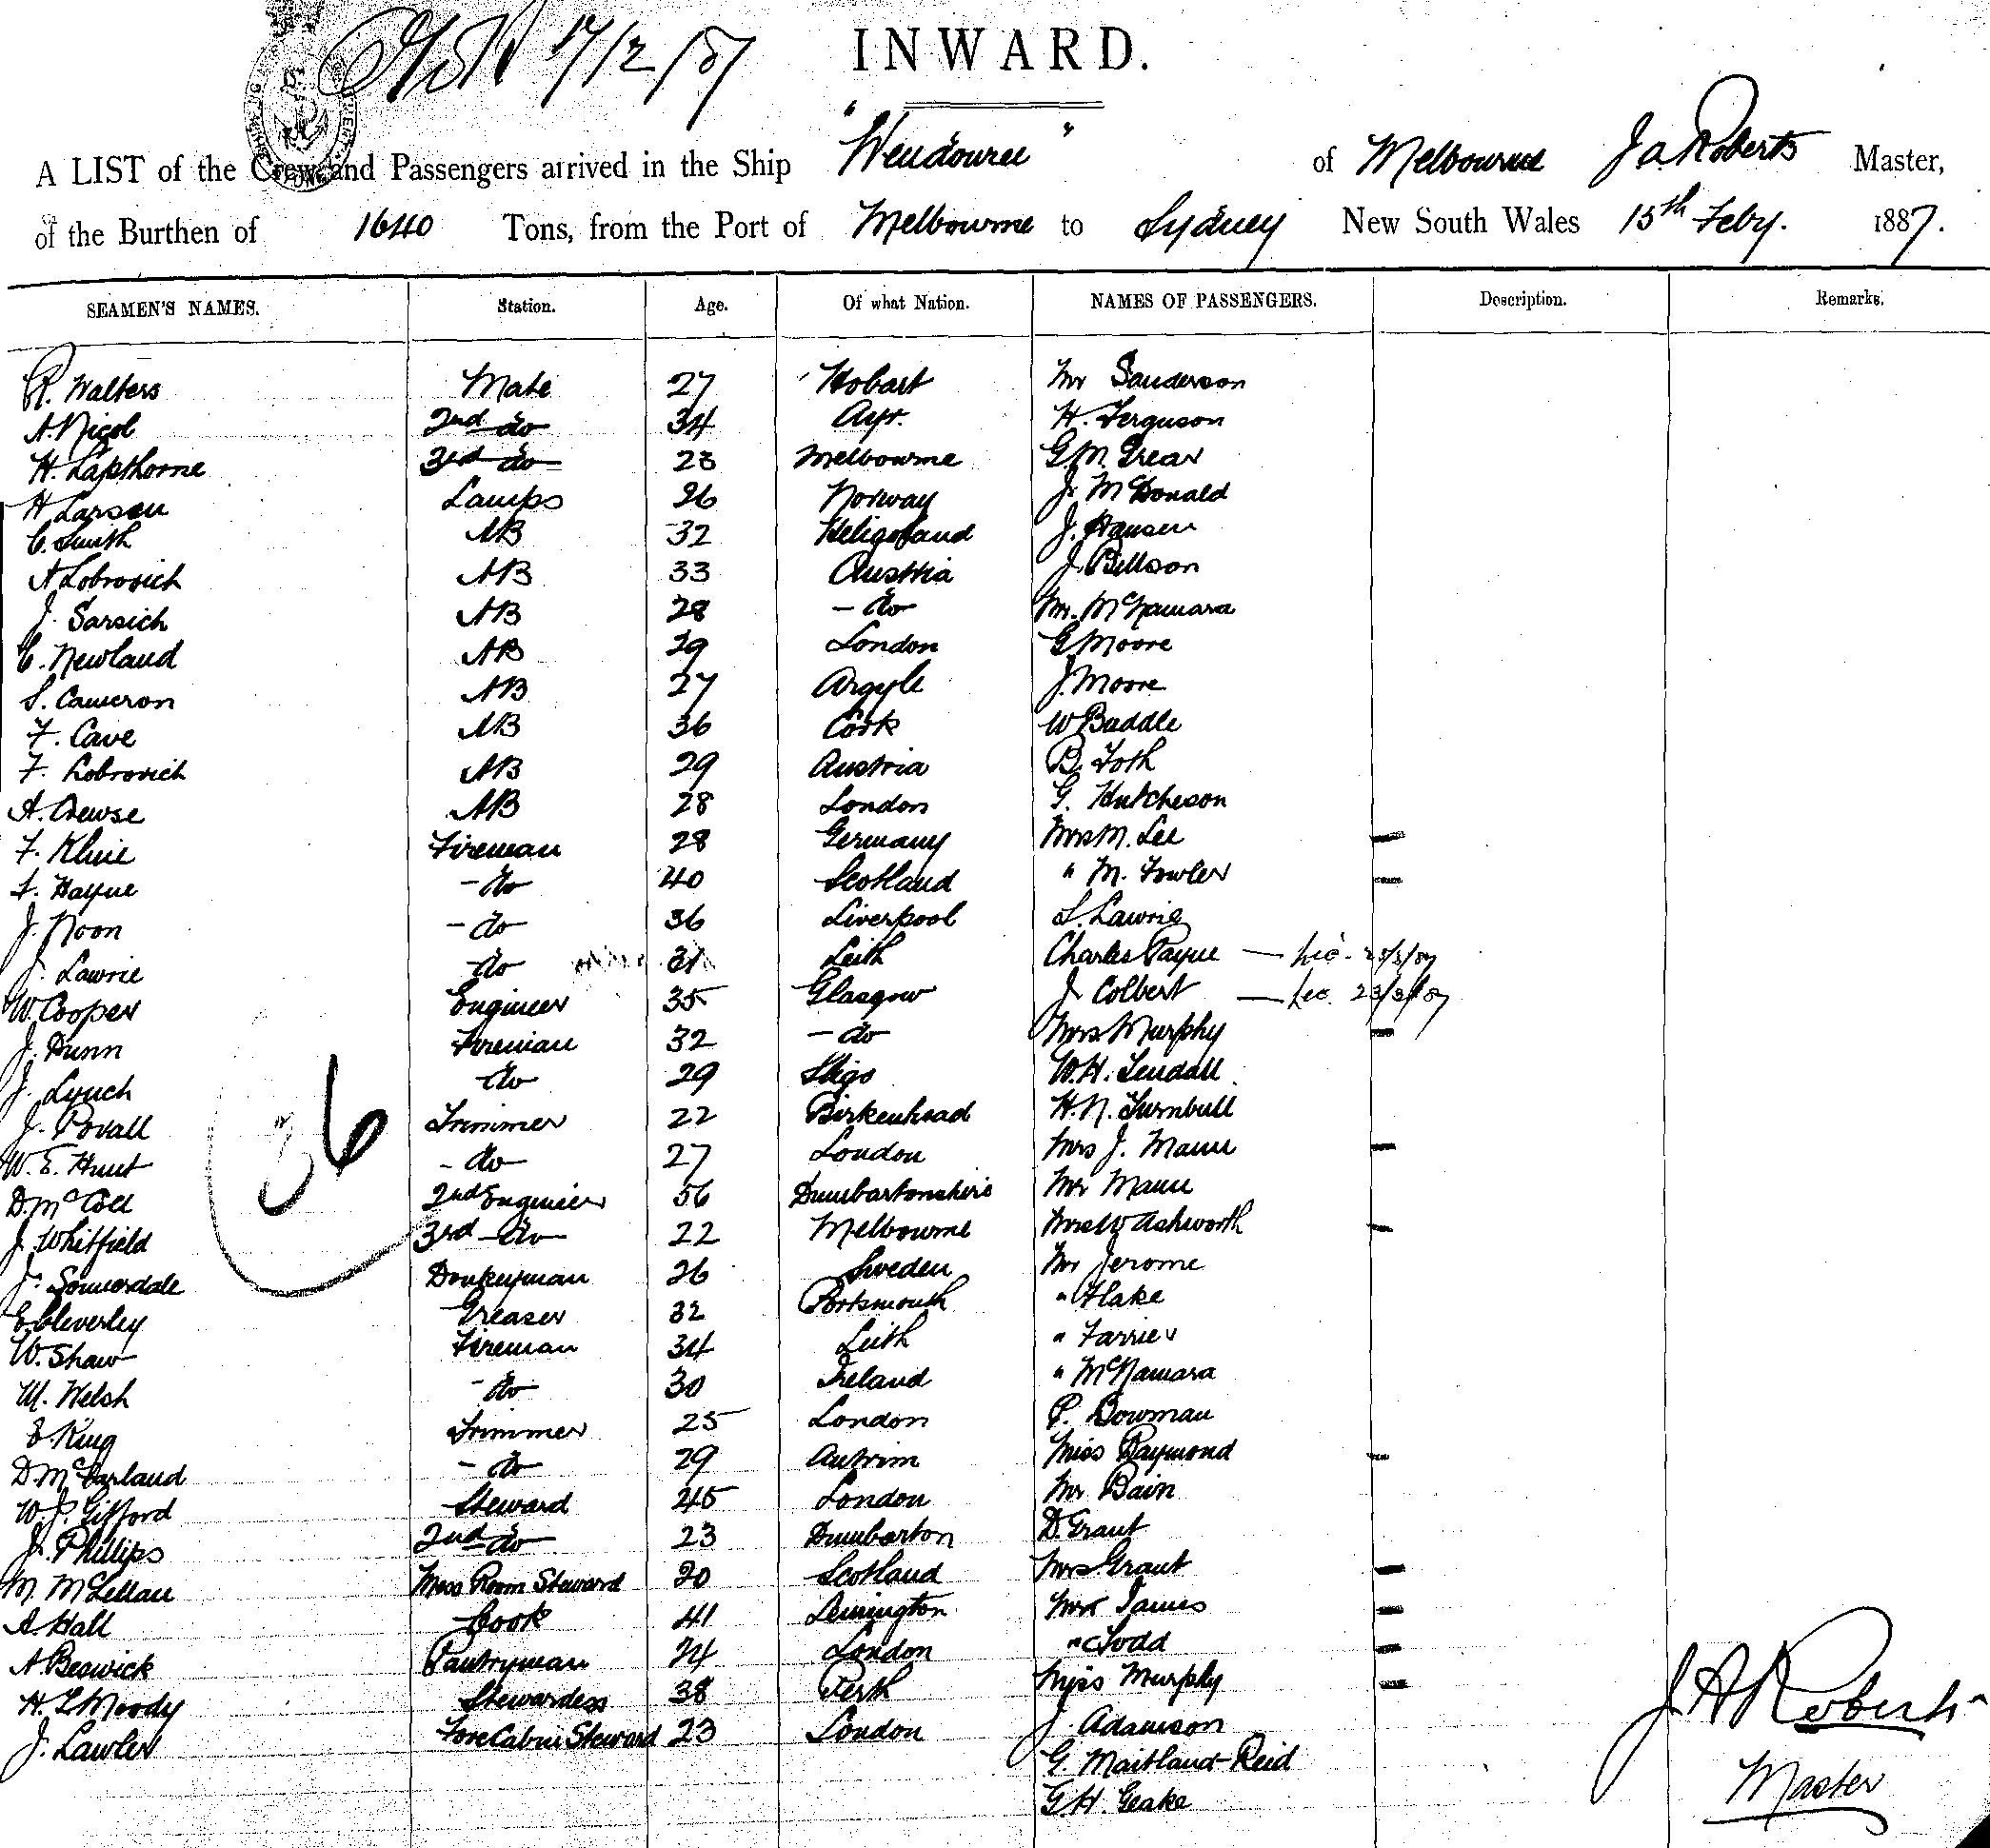 17/2/87
INWARD.
A LIST of the Crew and Passengers arrived in the Ship "Wendouree" of Melbourne J A Roberts Master,
of the Burthen of 1640 Tons, from the Port of Melbourne to Sydney New South Wales 15th Feby. 1887.
SEAMEN'S NAMES. Station. Age. Of what Nation. NAMES OF PASSENGERS. Description. Remarks.
R. Walters Mate 27 Hobart Mr Sanderson
A. Nicol 2nd do 34 Ayr. H. Ferguson
H. Lapthorne 3rd do 23 Melbourne G.M. Grear
H Larsen Lamps 26 Norway J. McDonald
C. Smith AB 32 Heligoland J. Hansen
A Lobrovich AB 33 Austria J. Billson
J. Sarsich AB 28 - do Mr. McNamara
C. Newland AB 29 London G Moore
S. Cameron AB 27 Argyle J. Moore
F. Cave AB 36 Cork W Buddle
F. Lobrovich AB 29 Austria B. Toth
A. Crewse AB 28 London G. Hutcheson
F. Kluie Fireman 28 Germany Mrs M. Lee
S. Hayne - do 40 Scotland " M. Fowler
J. Noon - do 36 Liverpool S. Lawrie
J. Lawrie do 31 Leith Charles Payne
W. Cooper Engineer 35 Glasgow J Colbert 23/3/87
J. Dunn Fireman 32 - do Mrs. Murphy
J. Lynch do 29 Sligo W.H. Tendall
J. Povall Trimmer 22 Birkenhead H.N. Turnbull
W. E. Hunt - do 27 London Mrs J. Mann
36
D. McColl 2nd Engineer 56 Dumbartonshire Mr Mann
J. Whitfield 3rd do 22 Melbourne Mrs W Ashworth
J. Sonnerdale Donkeyman 26 Sweden Mr Jerome
E Cleverley Greaser 32 Portsmouth " Flake
W. Shaw Fireman 34 Leith " Farrier
M. Welsh - do 30 Ireland " McNamara
E. King Trimmer 25 London P. Bowman
D. McCarland - do 29 Antrim Miss Raymond
W. J. Gifford Steward 45 London Mr Bain
J. Phillips 2nd do 23 Dumbarton D. Grant
M. McLellan Mess Room Steward 20 Scotland Mrs Grant
A Hall Cook 41 Lemington Mrs James
A. Beswick Pantryman 24 London " Todd
H. L Moody Stewardess 38 Perth Miss Murphy
J. Lawler Fore Cabin Steward 23 London J. Adamson
G. Maitland-Reid
G.H. Geake
J A Roberts
Master